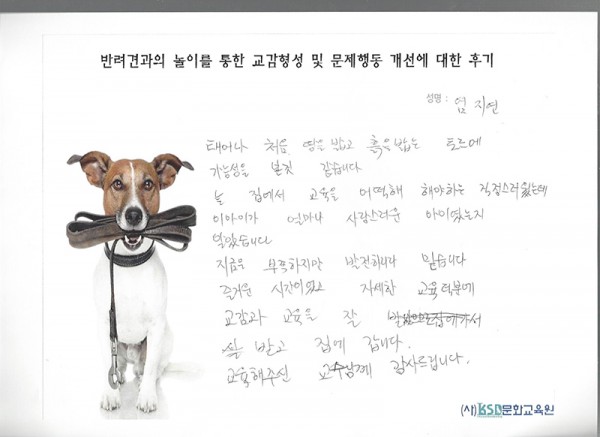 반려견과의 놀이를 통한 교감형성 및 문제행동 개선에 대한 후기
성명 : 염 지연
태어나 처음 땅을 밟고 흙을 밟는 토르에
가능성을 본것 같습니다
늘 집에서 교육을 어떡해 해야하는 걱정스러웠는데
이아이가 얼마나 사랑스러운 아이였는지
알았습니다
지금은 부족하지만 발전하리라 믿습니다
즐거운 시간이였고 자세한 교육덕분에
교감과 교육을 잘
받고 집에 갑니다.
교육해주신 교수님께 감사드립니다.
(사)KSD문화교육원